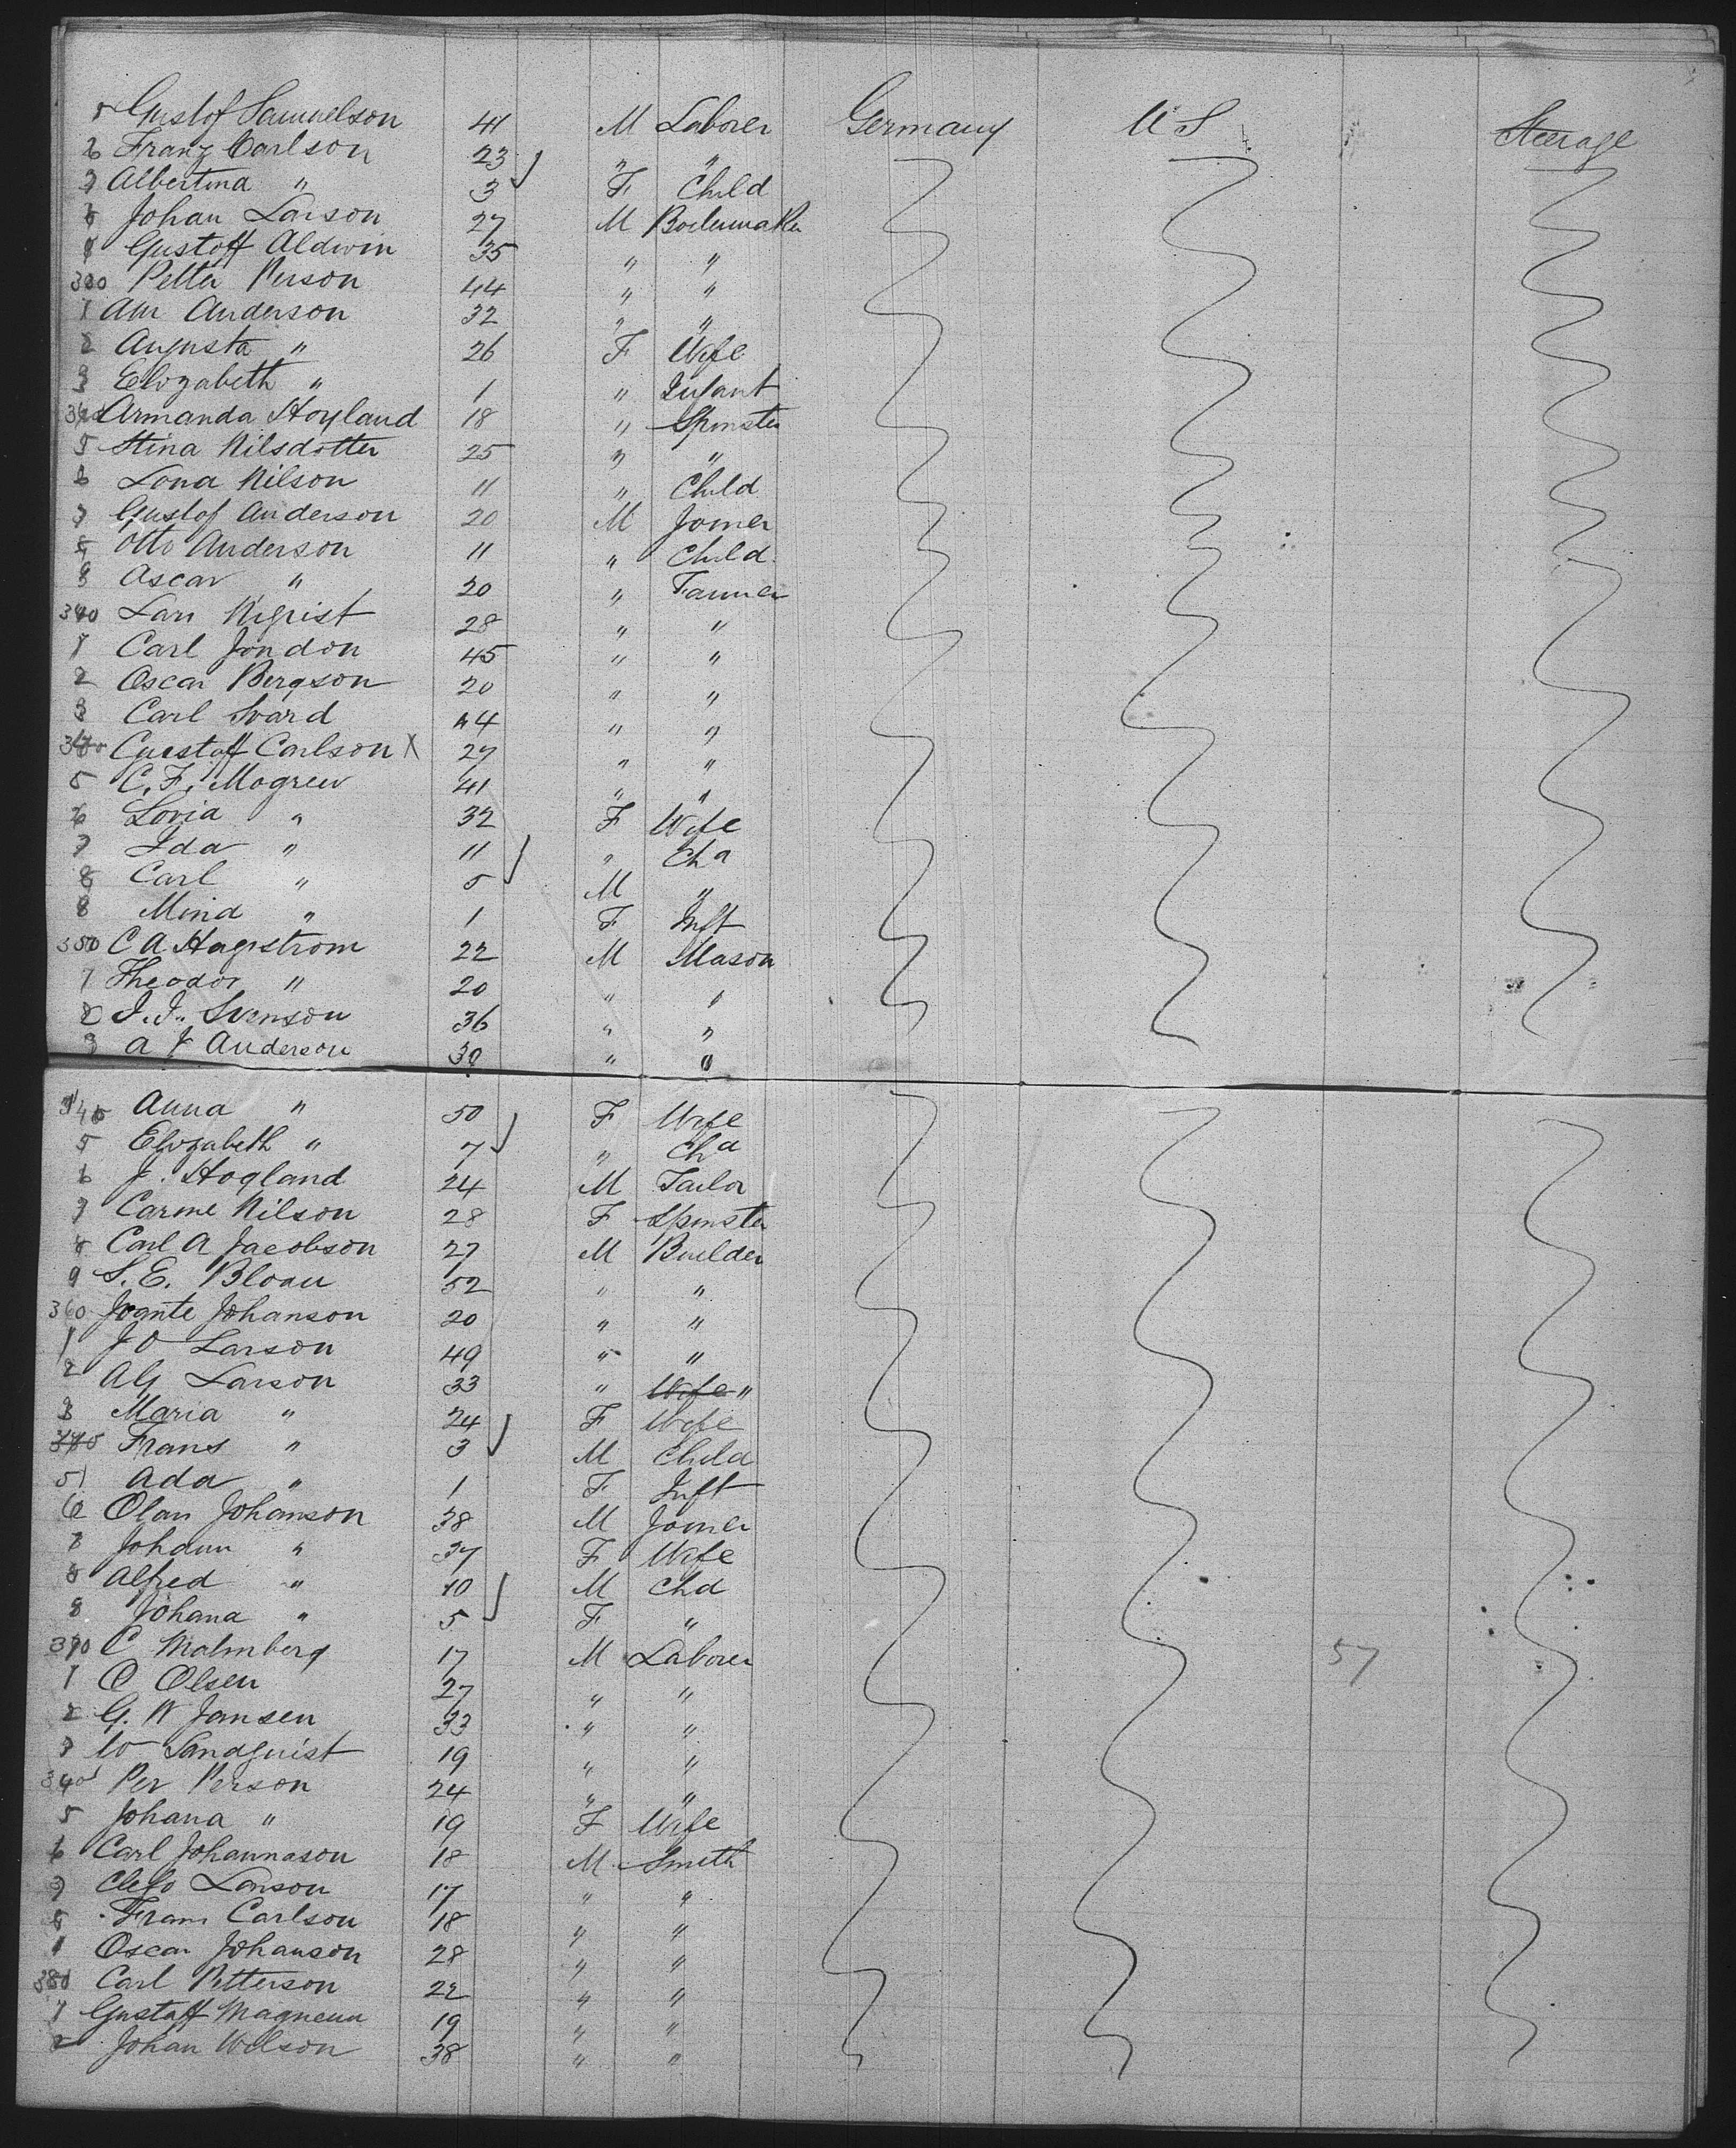 5 Gustof Samuelson 41 M Laborer Germany U S Steerage
6 Franz Carlson 23 " "
7 Albertina " 3 F Child
8 Johan Larson 27 M Boilermaker
Gustoff Aldwin 35 " "
Petter Person 44 " "
1 Anderson 32 " "
2 Augusta " 26 F Wife
3 Elizabeth " 1 " Infant
Armanda Hoyland 18 " Spinster
5 Stina Nilsdotter 25 " "
6 Lona Nilson 11 " Child
7 Gustof Anderson 20 M Joiner
Otto Anderson 11 " Child
Ascar " 20 " Farmer
340 Lars 28 " "
1 Carl Jondon 45 " "
2 Oscar Bergson 20 " "
3 Carl Svard 44 " "
Gustaff Carlson X 27 " "
5 C. F. Mogren 41 " "
6 Lovia " 32 F Wife
7 Ida " 11 " Chd
8 Carl " 5 M "
Mina " 1 F Inft
350 C A Hagistrom 22 M Mason
1 Theodor " 20 " "
2 J. J. Svenson 36 " "
3 A J Anderson 30 " "
Anna " 50 F Wife
5 Elizabeth " 7 " Chd
6 J. Hogland 24 M Tailor
7 Carine Nilson 28 F Spinster
8 Carl A Jacobson 27 M Builder
9 S. E. Bloau 52 " "
360 Johanson 20 " "
1 J O Larson 49 " "
2 Larson 33 " Wife "
3 Maria " 24 F Wife
Frans " 3 M Child
5 Ada " 1 F Inft
6 Olan Johanson 38 M Joiner
7 Johann " 37 F Wife
8 Alfred " 10 M Chd
Johana " 5 F "
370 C Malmberg 17 M Laborer 57
1 O Olsen 27 " "
2 G. W Jansen 33 " "
3 Sandquist 19 " "
Per Person 24 " "
5 Johana " 19 F Wife
6 Carl Johannason 18 M Smith
7 Larson 17 " "
8 Frans Carlson 18 " "
Oscar Johanson 28 " "
380 Carl Petterson 22 " "
1 Gustaff Magnenn 19 " "
2 Johan Wilson 38 " "